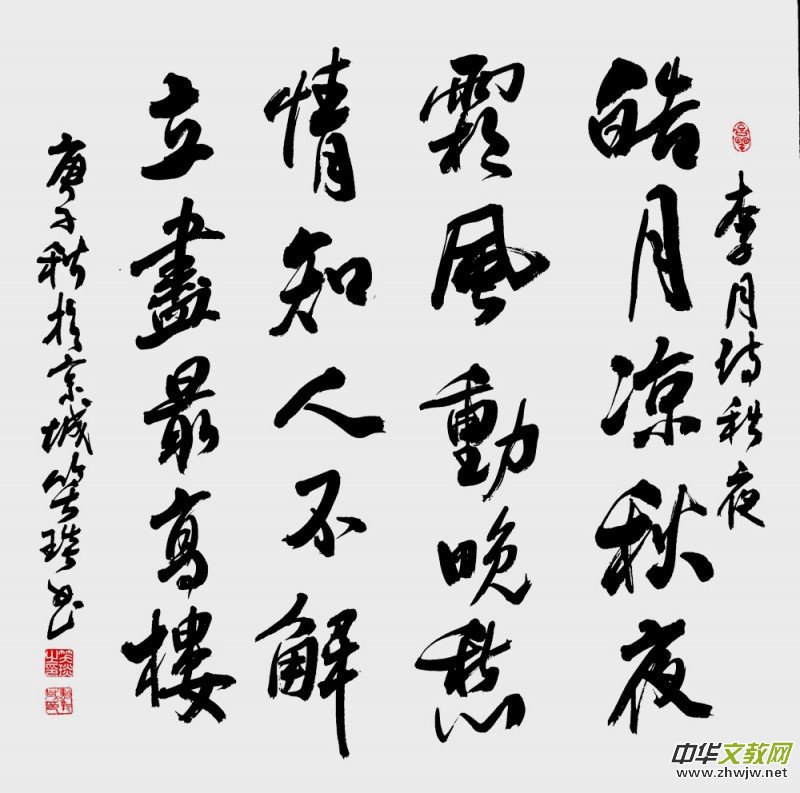 李月诗秋夜
皓月凉秋夜
霜風動晚愁
情知人不解
立盡最高樓
庚子秋於京城笑琰书
中华文教网
www.zhwjw.net